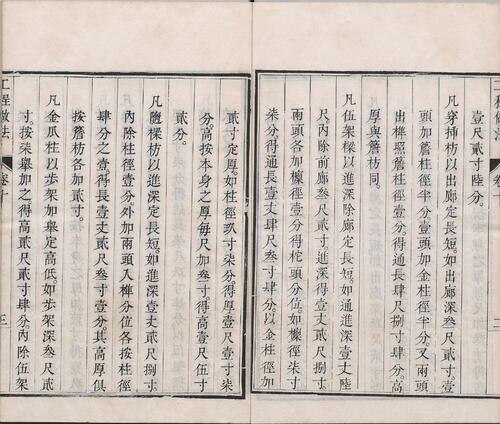 工程做法 卷十 二
壹尺貳寸陸分。
凡穿揷枋以出廊定長短。如出廊深叁尺貳寸。壹
頭加簷柱徑半分。壹頭加金柱徑半分。又兩頭
出榫照簷柱徑壹分。得通長肆尺捌寸肆分。高
厚與簷枋同。
凡伍架樑以進深除廊定長短。如通進深壹丈陸
尺。內除前廊叁尺貳寸。進深得壹丈貳尺捌寸。
兩頭各加檁徑壹分得柁頭分位。如檁徑柒寸
柒分。得通長壹丈肆尺叁寸肆分。以金柱徑加
貳寸定厚。如柱徑玖寸柒分。得厚壹尺壹寸柒
分。高按本身之厚每尺加叁寸。得高壹尺伍寸
貳分。
凡隨樑枋以進深定長短。如進深壹丈貳尺捌寸。
內除柱徑壹分。外加兩頭入榫分位。各按柱徑
肆分之壹。得長壹丈貳尺叁寸壹分。其高厚俱
按簷枋各加貳寸。
凡金瓜柱以步架加舉定高低。如步架深叁尺貳
寸。按柒舉加之。得高貳尺貳寸肆分。內除伍架
工程做法 卷十 三